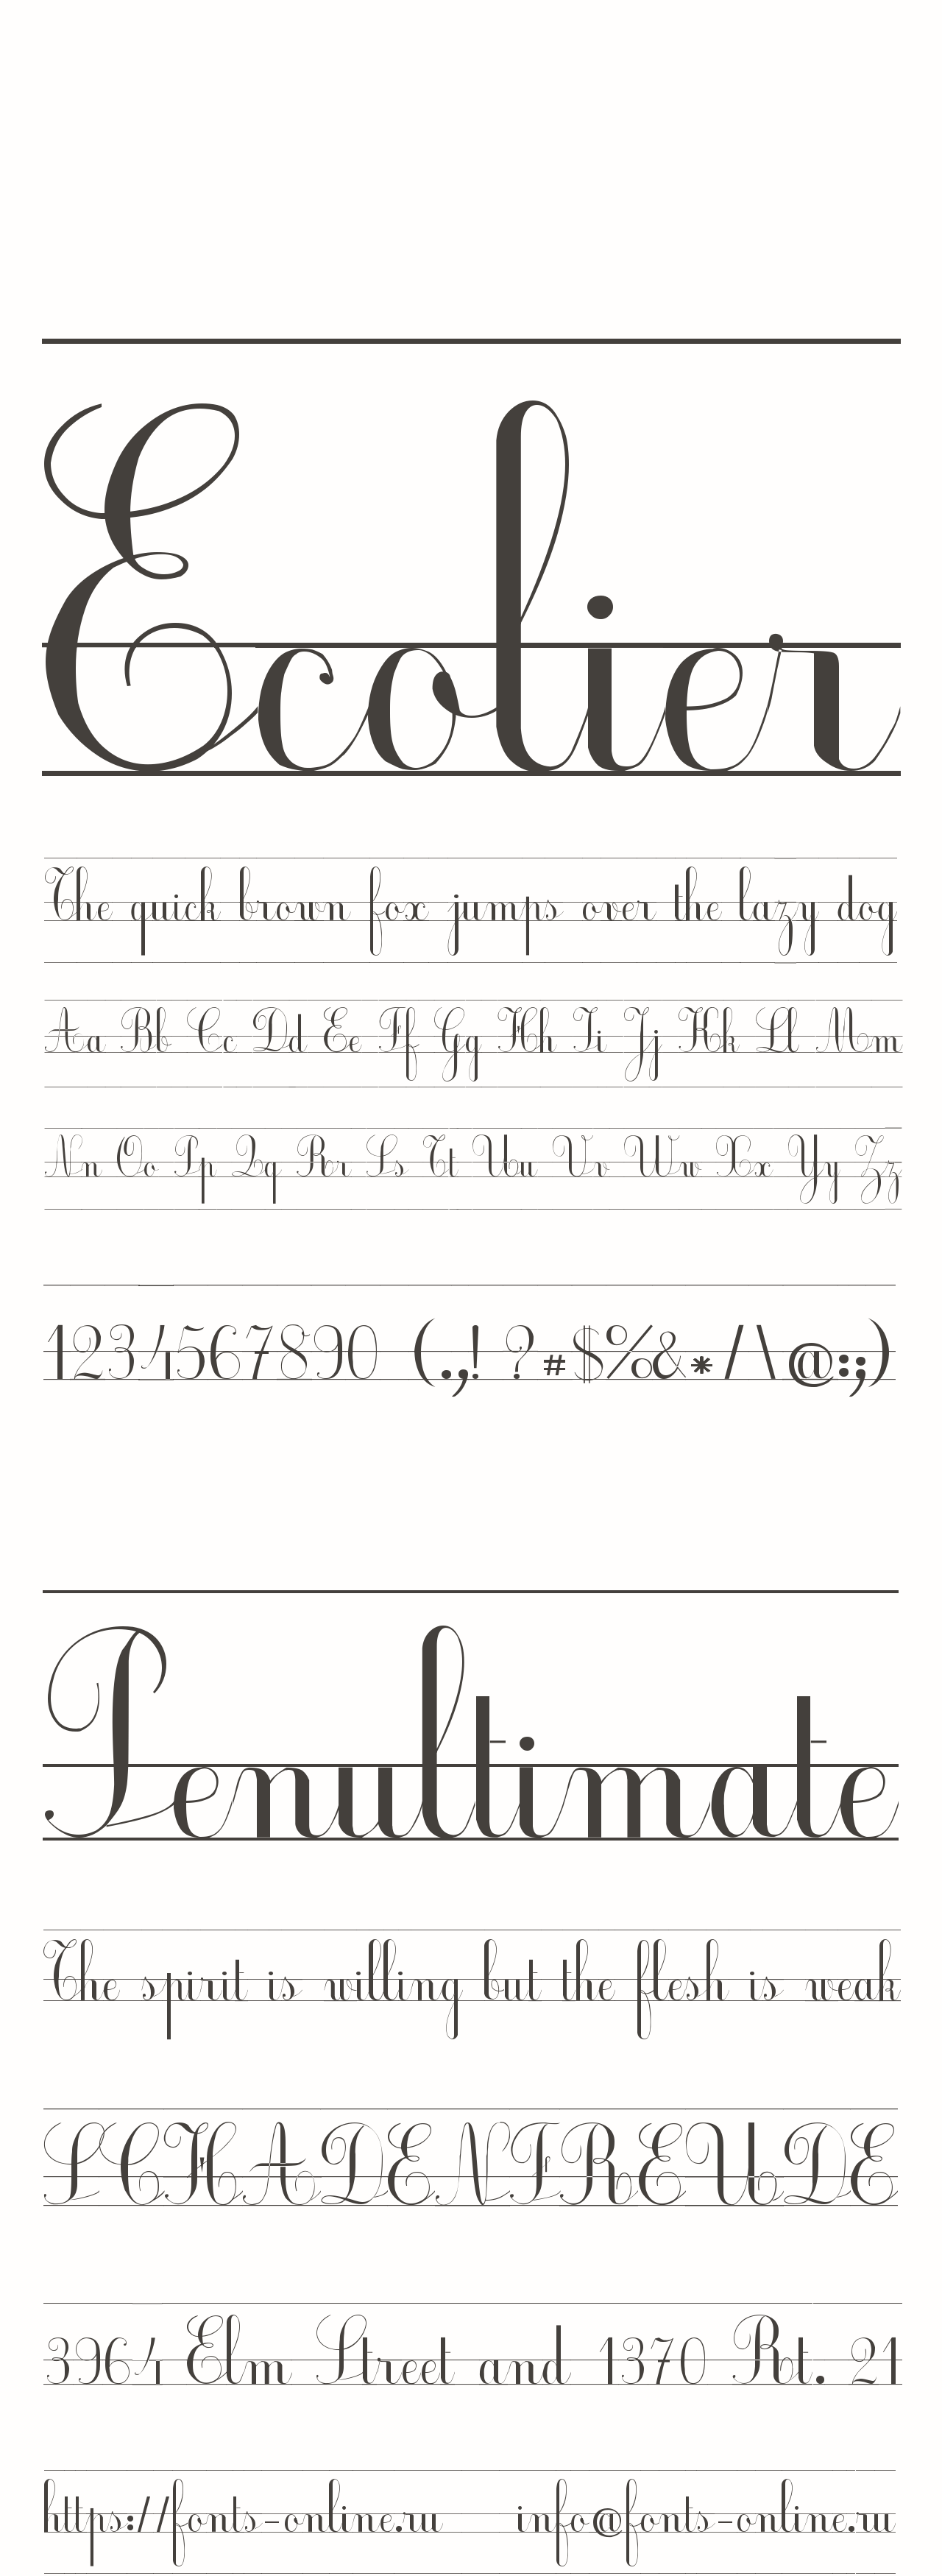 Ecolier
The quick brown fox jumps over the lazy dog
Aa Bb Cc Dd Ee Ff Gg Hh Ii Jj Kk Ll Mm
Nn Oo Pp Qq Rr Ss Tt Uu Vv Ww Xx Yy Zz
1234567890 (.,! ? #$%&*/\@:;)
Penultimate
The spirit is willing but the flesh is weak
SCHADENFREUDE
3964 Elm Street and 1370 Rt. 21
https://fonts-online.ru info@fonts-online.ru